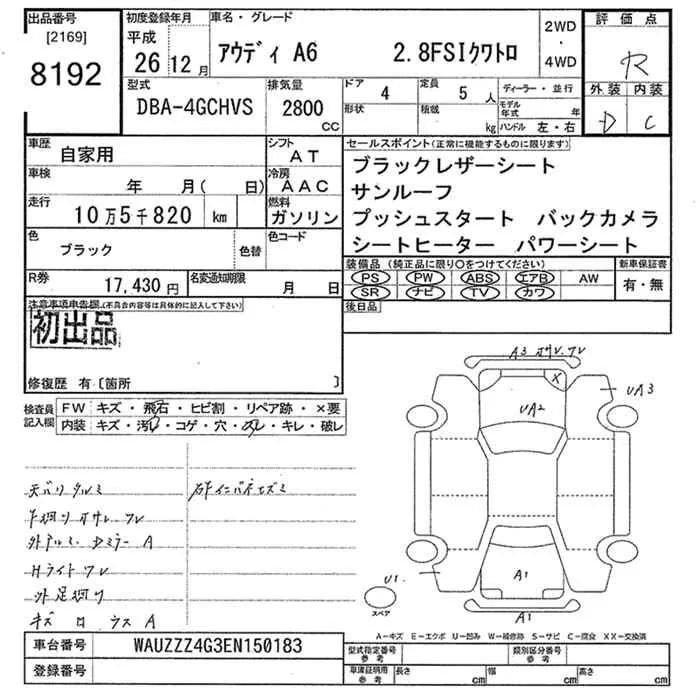 出品番号
[2169]
8192
初度登録年月
平成
26 12 月
車名・グレード
アウディ A6 2.8FSIクワトロ
2WD
・
4WD
評価点
R
外装 内装
D C
型式
DBA-4GCHVS
排気量
2800
CC
ドア 4
形状
定員 5 人
積載 kg
ディーラー・並行
モデル年式 年
ハンドル 左・右
車歴
自家用
シフト
AT
車検
年 月( 日)
冷房
AAC
走行
10万5千820 km
燃料
ガソリン
色
ブラック
色替
色コード
R券
17,430円
名変通知期限
月 日
セールスポイント(正常に機能するものに限ります)
ブラックレザーシート
サンルーフ
プッシュスタート バックカメラ
シートヒーター パワーシート
装備品(純正品に限り○をつけてください)
PS PW ABS エアB AW
SR ナビ TV カワ
新車保証書
有・無
後日品
注意事項申告欄(不具合内容等は具体的に記入して下さい)
初出品
修復歴 有〔箇所 〕
検査員
記入欄
FW キズ・飛石・ヒビ割・リペア跡・×要
内装 キズ・汚れ・コゲ・穴・スレ・キレ・破レ
天バリ タルミ
下廻り サレ ワレ
外アルミ Dミラー A
Hライト ワレ
外足廻り
キズ ロ ウス A
A3 ワレ
UA2
X
UA3
A1
A1
U1
スペア
A-キズ E-エクボ U-凹み W-補修跡 S-サビ C-腐食 XX-交換済
車台番号
WAUZZZ4G3EN150183
登録番号
型式指定番号
参考
類別区分番号
参考
車庫証明用
参考
長さ cm
幅 cm
高さ cm